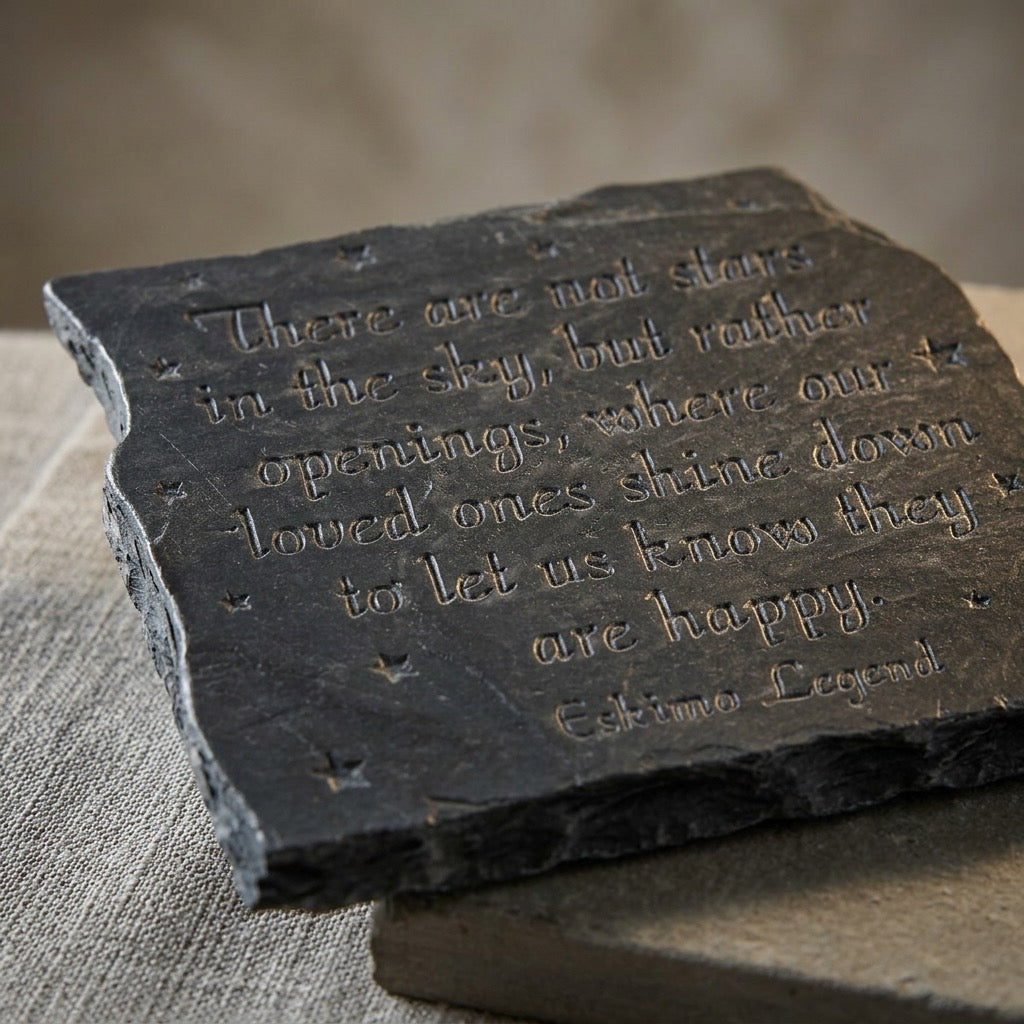 There are not stars
in the sky, but rather
openings, where our
loved ones shine down
to let us know they
are happy.
Eskimo Legend